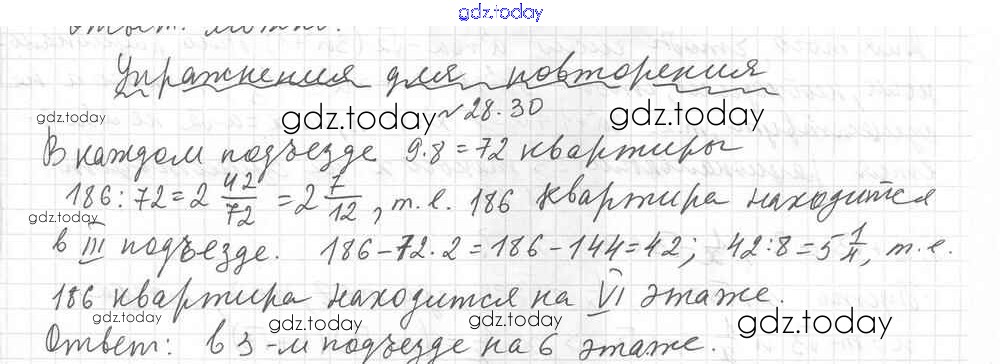 gdz.today
Ответ: можно.
Упражнения для повторения
gdz.today
№28.30
gdz.today
gdz.today
В каждом подъезде 9·8=72 квартиры
186:72=2 42/72 =2 7/12, т.е. 186 квартира находится
gdz.today
в III подъезде. 186-72·2=186-144=42; 42:8=5 1/4, т.е.
186 квартира находится на VI этаже.
gdz.today
gdz.today
gdz.today
gdz.today
Ответ: в 3-м подъезде на 6 этаже.